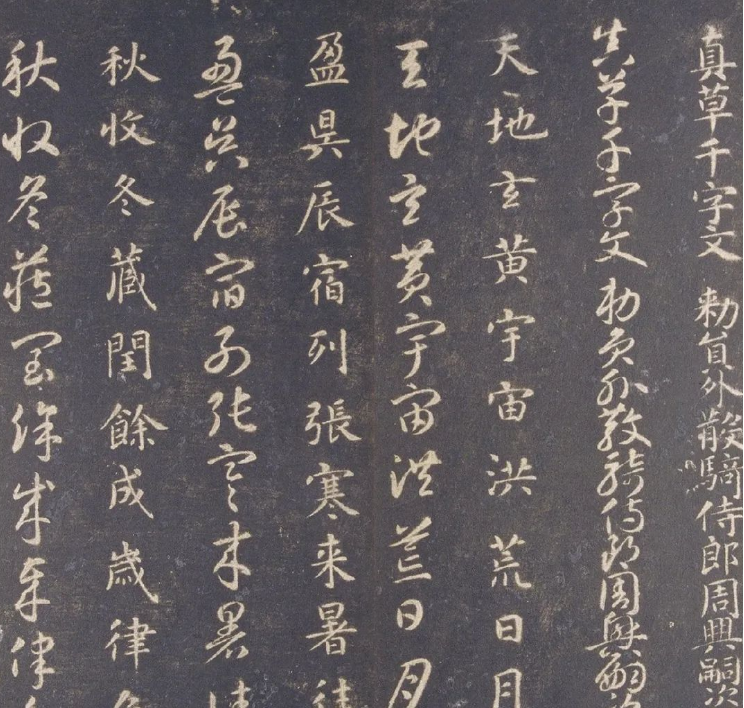 真草千字文 勅員外散騎侍郎周興嗣次
真草千字文 勅員外散騎侍郎周興嗣次
天地玄黄宇宙洪荒日月
天地玄黄宇宙洪荒日月
盈昃辰宿列張寒来暑往
盈昃辰宿列張寒来暑往
秋收冬蔵閏餘成歲律
秋收冬蔵閏餘成歲律